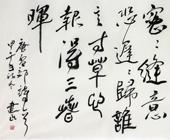 密〻縫意
恐遲〻歸誰
言寸草心
報得三春
暉
唐孟郊詩
甲午